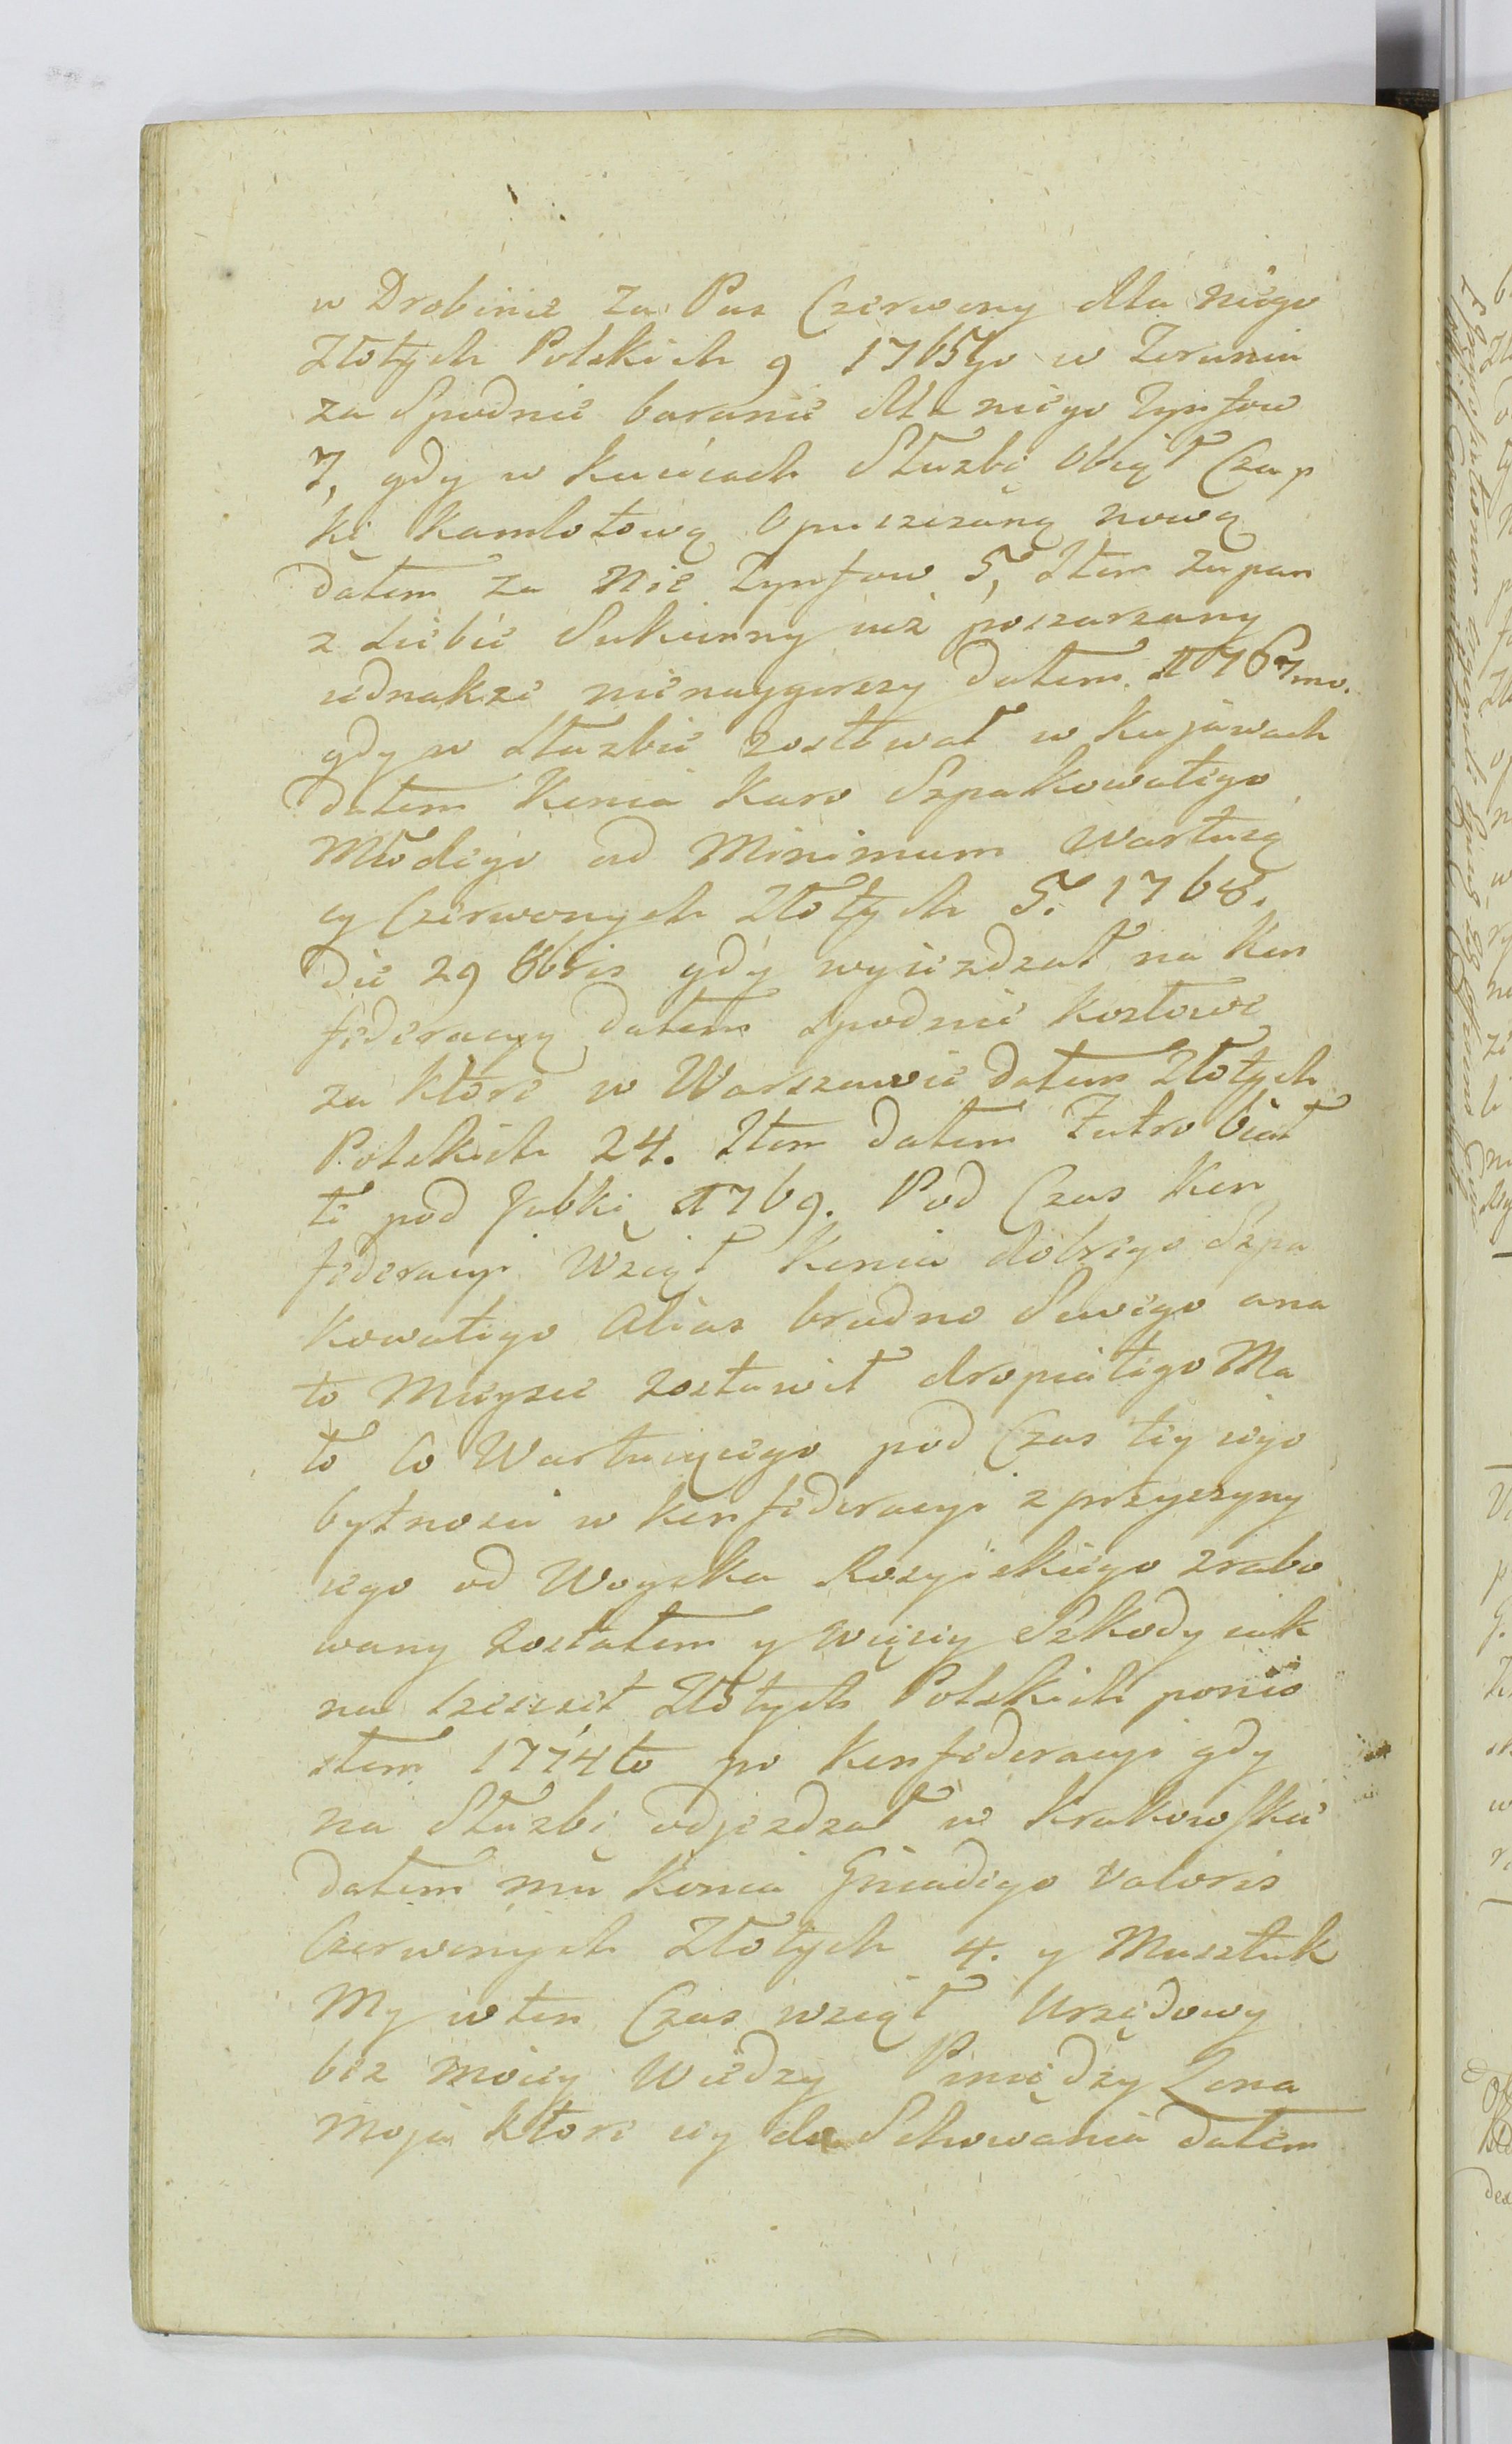 w Drobinie za Pas Czerwony dla niego
Złotych Polskich 9 1765go w Toruniu
za Spodnie baranie dla niego Tynfow
7, gdy w Kuiácach Służbę Obiął Czap
kę Kamlotową Opuszczáną nową
dałem za Nię Tynfow 5, Item żupan
z Siebie Sukienny iuż poszarzany
iednakże nienaygorszy dałem. 1767mo.
gdy w Służbie zostawał w Kujawach
dałem Konia Karo Szpakowatego
Młodego ad Minimum Wartuią
cy Czerwonych Złotych 5. 1768.
die 29 8bris gdy wyieżdzał na Kon
federacyą dałem Spodnie Kozłowe
za które w Warszawie dałem Złotych
Polskich 24. Item dałem Futro biał
łe pod Jubkę 1769. Pod Czas Kon
federacyi Wziął Konia dobrego Szpa
kowatego Alias brudno Siwego a na
to Mieysce zostawił dropiatego Ma
ło Co Wartuiącego pod Czas tey iego
bytnosci w Konfederacyi z przyczyny
iego od Woyska Rosyiskiego zrabo
wany zostałem y więcey Szkody iak
na trzysiet Złotych Polskich ponio
słem 1774to po Konfederacyi gdy
na Służbę odjeżdzał w Krakowskie
dałem mu Konia Gniadego Valoris
Czerwonych Złotych 4. y Musztuk
My w ten Czas wziął Urzędowy
bez moiey Wiedzy Pmiędzy Zona
moja które iey do Schowania dałem